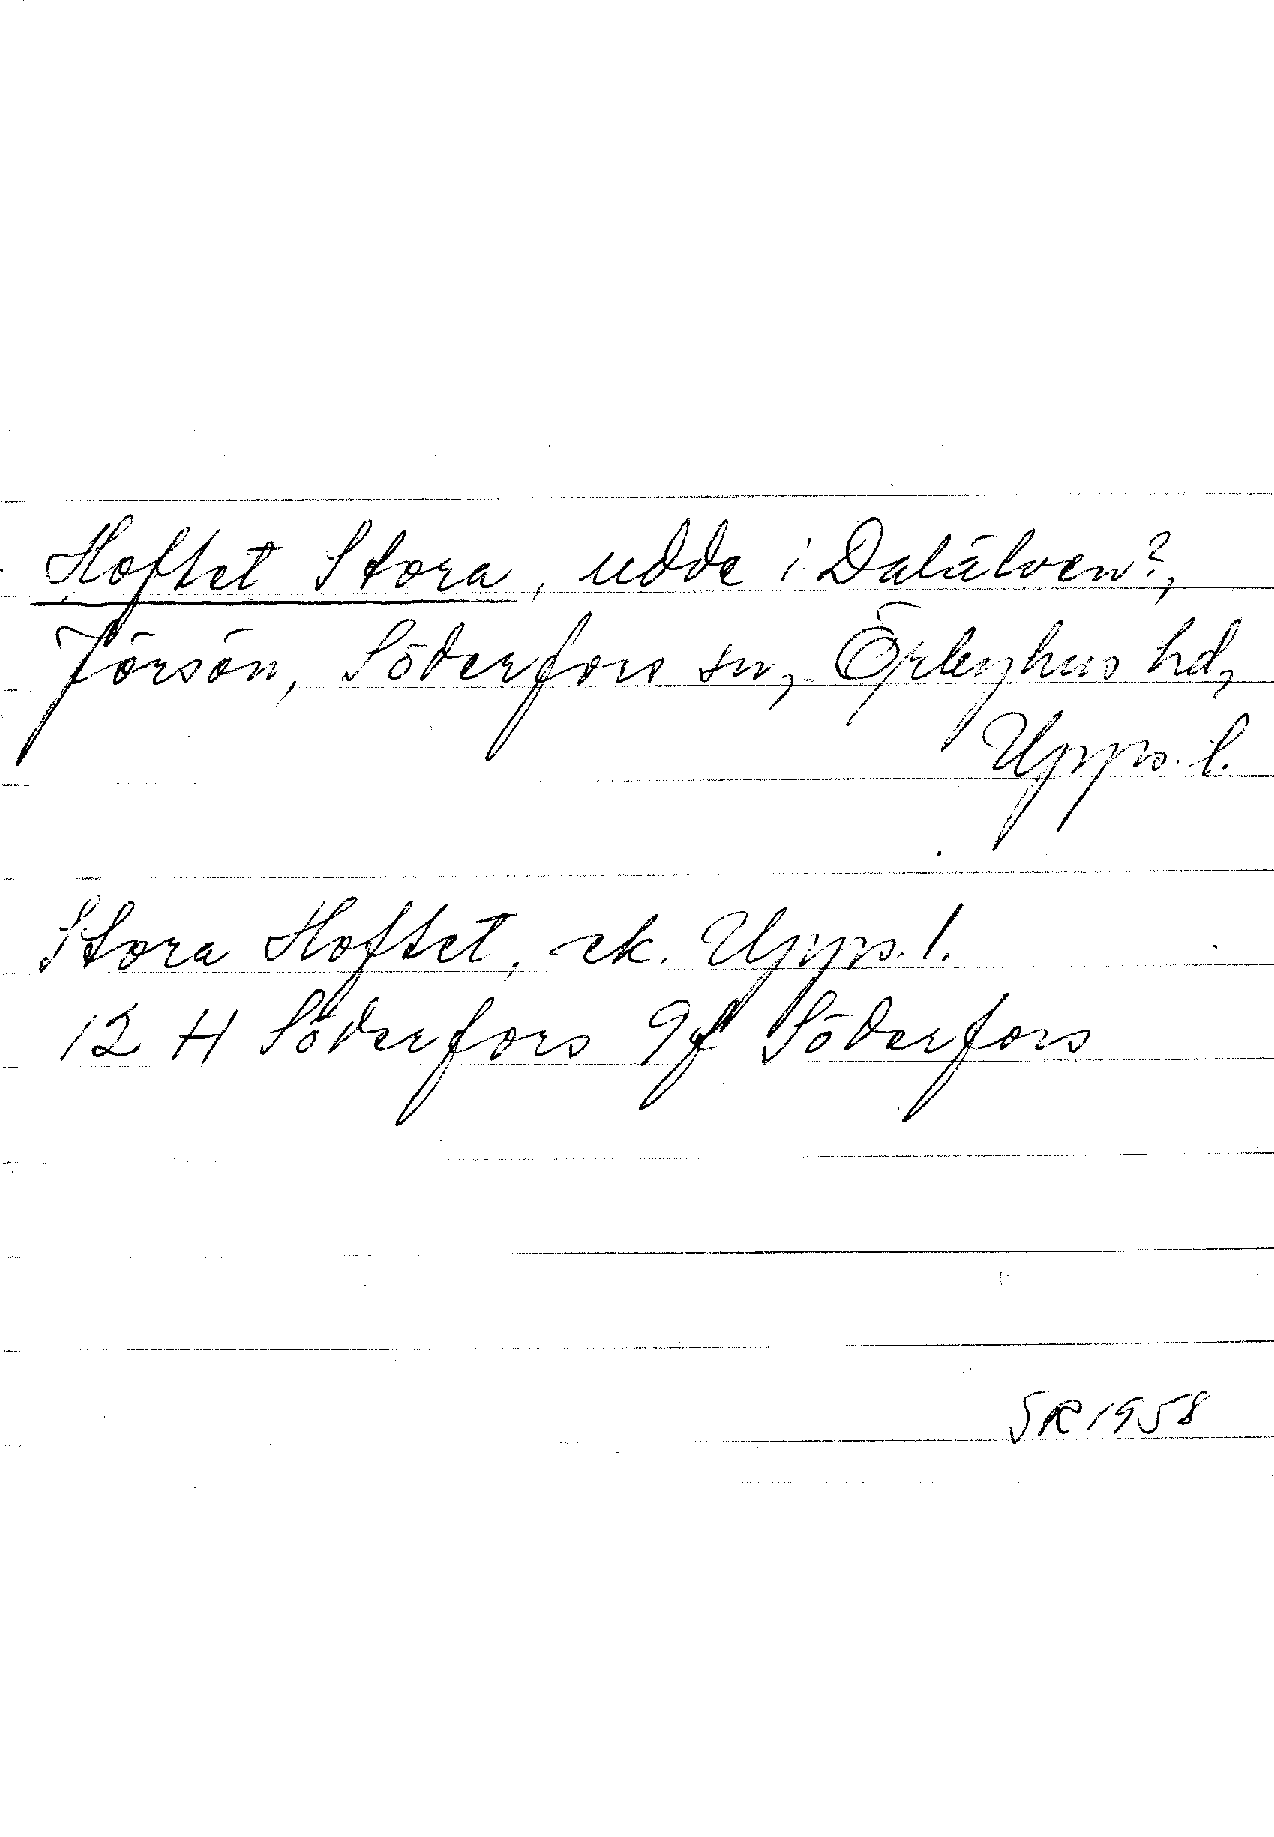 Hoftet Stora, udde i Dalälven?,
Jörsön, Söderfors sn, Örbyhus hd,
Upps. l.
Stora Hoftet, ek. Upps. l.
12 H Söderfors 9f Söderfors
SR 1958